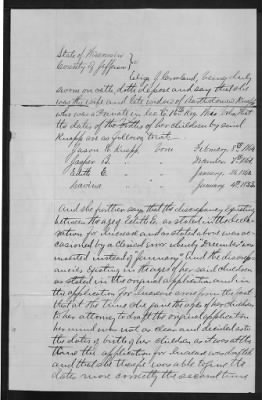 State of Wisconsin }
County of Jefferson }
Eliza J. Cleveland, being duly
sworn on oath doth depose and say that she
was the wife and late widow of Bartholomew Knapp
who was a Private in Co
the dates of the births of her children by said
Knapp are as follows to wit:
Jason H. Knapp born February 8th
Jasper B. " 
Edith E. " January
Lavina " January 4th
And she further says that the discrepancy existing
between the age of Edith E. as stated in the decla-
ration for increase and as stated above was oc-
casioned by a Clerical error whereby "December" was
inserted instead of "January" And the discrep-
ancies existing in the ages of her said children
as stated in the original application and in
the application for increase arose from the fact
that at the time she gave the ages of her children
to her attorney to draft the original application
her mind was not as clear and decided as to
the dates of birth of her children as it was at the
time the application for increase was drafted
and that she thereof was able to give the
dates more correctly the second time